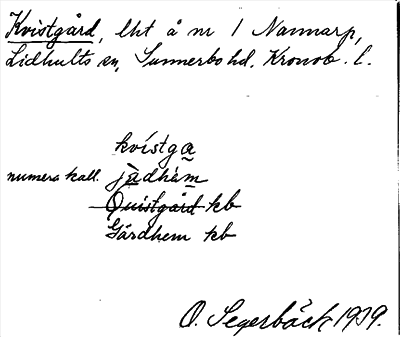 Kvistgård, lht å nr 1 Nannarp,
Lidhults sn, Sunnerbo hd. Kronob. l.
kvístga
numera kall. jàdhèm
Quistgård kb
Gårdhem kb
O. Segerbäck 1939.